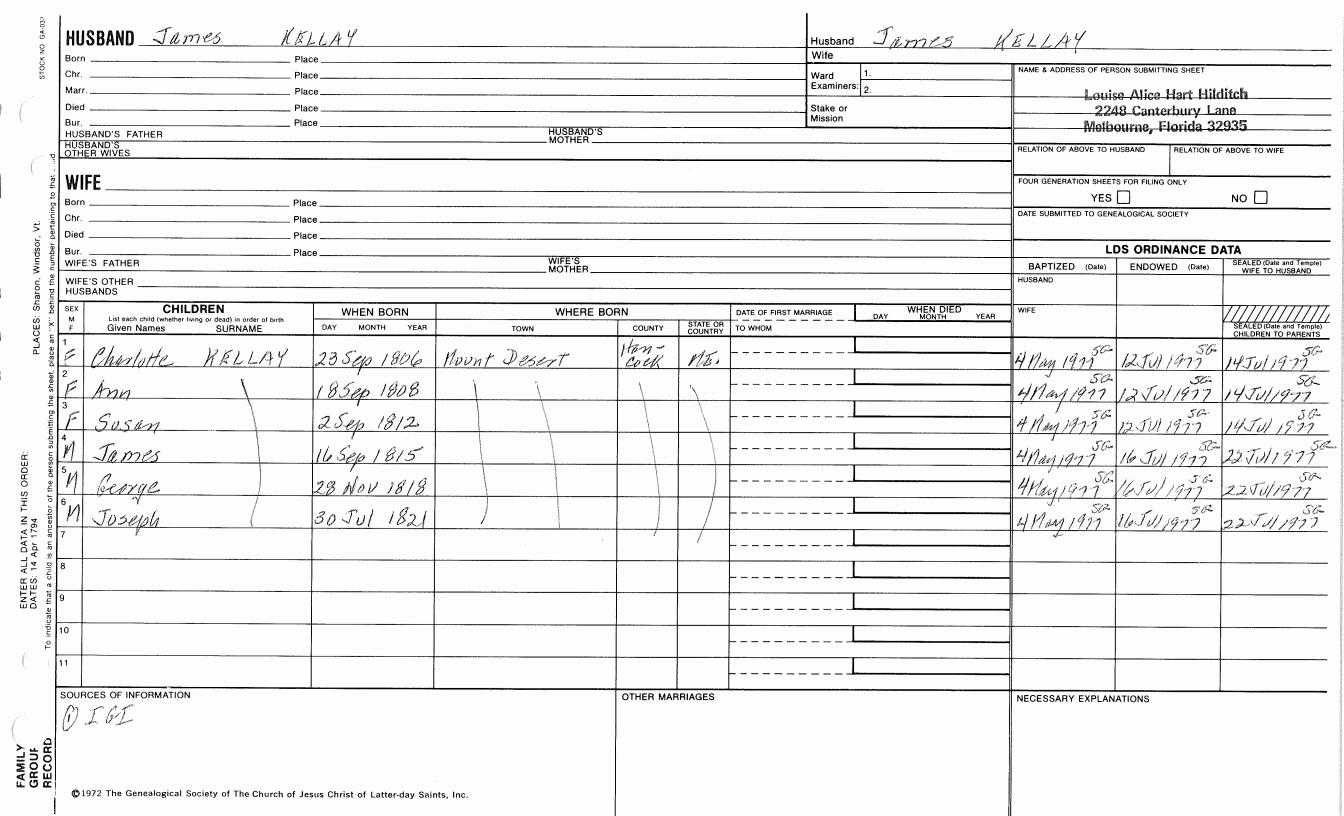 HUSBAND James KELLAY
Born Place
Chr. Place
Marr. Place
Died Place
Bur. Place
HUSBAND'S FATHER HUSBAND'S MOTHER
HUSBAND'S OTHER WIVES
Husband James KELLAY
Wife
Ward Examiners: 1.
2.
Stake or Mission
NAME & ADDRESS OF PERSON SUBMITTING SHEET
Louise Alice Hart Hilditch
2248 Canterbury Lane
Melbourne, Florida 32935
RELATION OF ABOVE TO HUSBAND RELATION OF ABOVE TO WIFE
FOUR GENERATION SHEETS FOR FILING ONLY
YES NO
DATE SUBMITTED TO GENEALOGICAL SOCIETY
WIFE
Born Place
Chr. Place
Died Place
Bur. Place
WIFE'S FATHER WIFE'S MOTHER
WIFE'S OTHER HUSBANDS
LDS ORDINANCE DATA
BAPTIZED (Date) ENDOWED (Date) SEALED (Date and Temple) WIFE TO HUSBAND
HUSBAND
WIFE
SEALED (Date and Temple) CHILDREN TO PARENTS
SEX M F
CHILDREN
List each child (whether living or dead) in order of birth
Given Names SURNAME
WHEN BORN
DAY MONTH YEAR
WHERE BORN
TOWN COUNTY STATE OR COUNTRY
DATE OF FIRST MARRIAGE
TO WHOM
WHEN DIED
DAY MONTH YEAR
1 F Charlotte KELLAY 23 Sep 1806 Mount Desert Han-cock ME. 4 May 1977 SG 12 Jul 1977 SG 14 Jul 1977 SG
2 F Ann 18 Sep 1808 4 May 1977 SG 12 Jul 1977 SG 14 Jul 1977 SG
3 F Susan 2 Sep 1812 4 May 1977 SG 12 Jul 1977 SG 14 Jul 1977 SG
4 M James 16 Sep 1815 4 May 1977 SG 16 Jul 1977 SG 22 Jul 1977 SG
5 M George 28 Nov 1818 4 May 1977 SG 16 Jul 1977 SG 22 Jul 1977 SG
6 M Joseph 30 Jul 1821 4 May 1977 SG 16 Jul 1977 SG 22 Jul 1977 SG
7
8
9
10
11
SOURCES OF INFORMATION
① IGI
OTHER MARRIAGES
NECESSARY EXPLANATIONS
©1972 The Genealogical Society of The Church of Jesus Christ of Latter-day Saints, Inc.
STOCK NO. GA-037
PLACES: Sharon, Windsor, Vt.
ENTER ALL DATA IN THIS ORDER:
DATES: 14 Apr 1794
To indicate that a child is an ancestor of the person submitting the sheet, place an "X" behind the number pertaining to that
FAMILY GROUP RECORD